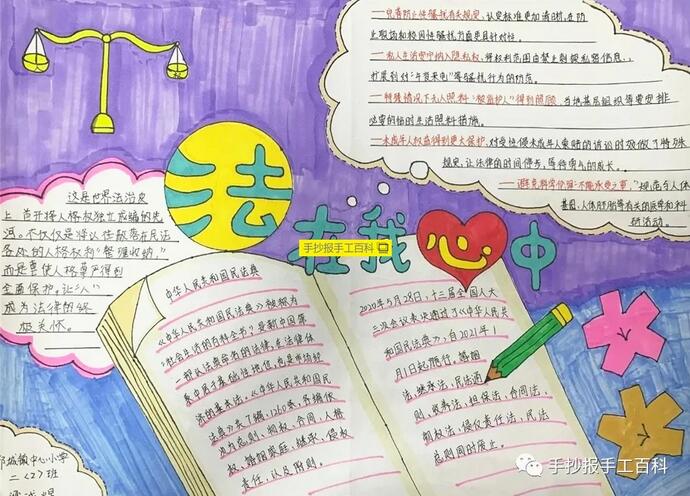 法在我心中
手抄报手工百科
一免责防止性骚扰有关规定,认定标准更加清晰,在防
止职场和校园性骚扰方面更具针对性。
一私人生活安宁纳入隐私权,
扩展到对"午夜来电"等骚扰行为的防范。
一特殊情况下无人照料"被监护人"得到照顾
必要的临时生活照料措施。
一未成年人权益得到更大保护,对受性侵未成年人索赔的诉讼时效做了特殊
规定,让法律的时间停步,等待勇气的成长。
基因、人体胚胎等有关的医学和科
研活动。
这是世界法治史
上首开将人格权独立成编的先
河。不仅仅是将以往散落在民法
各处的人格权利"整理收纳,"
而是要使人格尊严得到
全面保护,让"人"
成为法律的终
极关怀。
中华人民共和国民法典
《中华人民共和国民法典》被称为
"社会生活的百科全书"是新中国第
一部以法典命名的法律,在法律体
系中居于基础性地位,也是市场经
济的基本法。《中华人民共和国民
法典》共7编、1260条,各编依
次为总则、物权、合同、人格
权、婚姻家庭、继承、侵权
责任,以及附则。
2020年5月28日,十三届全国人大
三次会议表决通过了《中华人民共
和国民法典》,自2021年1
月1日起施行。婚姻
法、继承法、民法通
则、收养法、担保法、合同法、
物权法、侵权责任法、民法
总则同时废止。
中心小学
二〈2〉班
手抄报手工百科